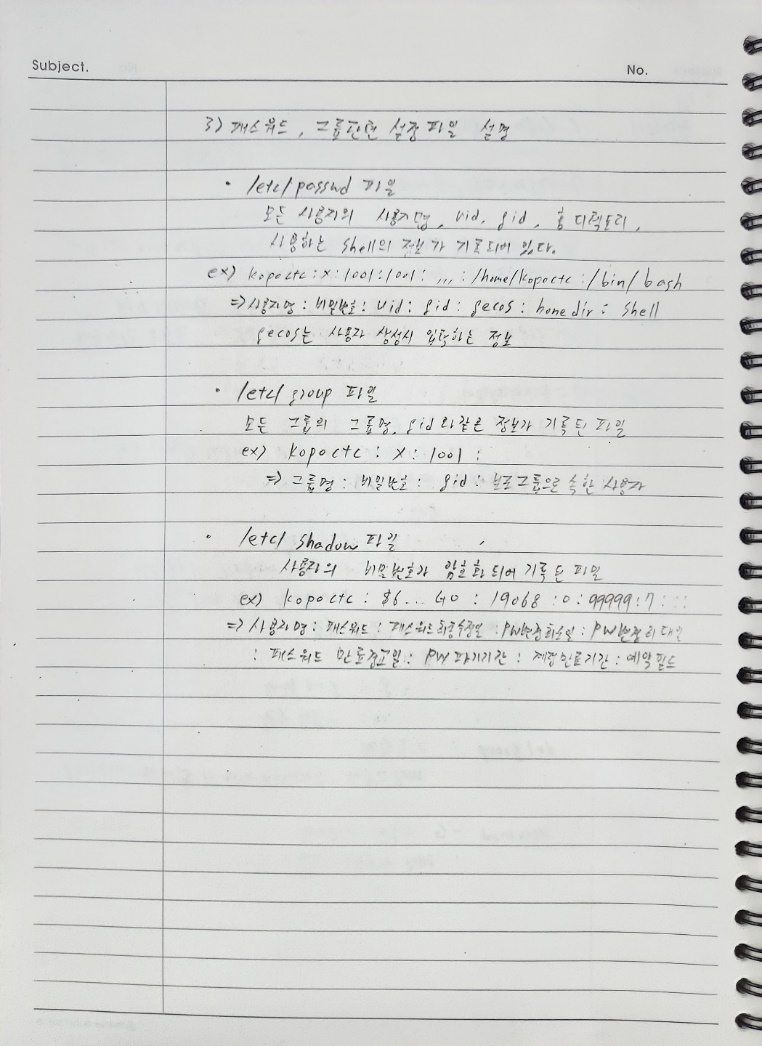 Subject.
No.
3) 패스워드, 그룹관련 설정파일 설명
• /etc/passwd 파일
모든 사용자의 사용자명, uid, gid, 홈 디렉토리,
사용하는 shell의 정보가 기록되어 있다.
ex) kopoctc : x : 1001:1001: ,,, : /home/kopoctc : /bin/bash
⇒ 사용자명 : 비밀번호 : uid : gid : gecos : home dir : shell
gecos는 사용자 생성시 입력하는 정보
• /etc/group 파일
모든 그룹의 그룹명, gid와 같은 정보가 기록된 파일
ex) kopoctc : x : 1001 :
⇒ 그룹명 : 비밀번호 : gid : 보조그룹으로 속한 사용자
• /etc/shadow 파일
사용자의 비밀번호가 암호화 되어 기록된 파일
ex) kopoctc : $6... GO : 19068 : 0 : 99999 : 7 : : :
⇒ 사용자명 : 패스워드 : 패스워드최종수정일 : PW변경최소일 : PW변경최대일
: 패스워드 만료경고일 : PW파기기간 : 계정만료기간 : 예약필드